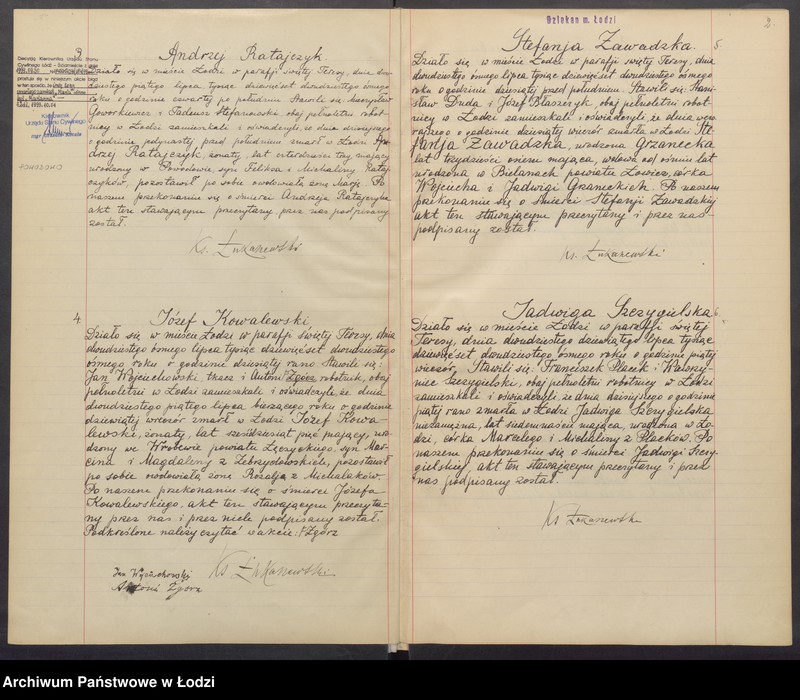 3.
Andrzej Ratajczyk
Działo się w mieście Łodzi w parafji świętej Teresy, dnia dwu-
dziestego piątego lipca, tysiąc dziewięćset dwudziestego ósmego
roku o godzinie czwartej po południu. Stawili się:
Goworkiewicz i Tadeusz Stefanowski, obaj pełnoletni robot-
nicy w Łodzi zamieszkali i oświadczyli, że dnia dzisiejszego
o godzinie przed południem zmarł w Łodzi An-
drzej Ratajczyk, żonaty, lat czterdzieści trzy mający,
urodzony w syn Feliksa i Michaliny Rataj-
czyków, pozostawił po sobie owdowiałą żonę Marję. Po
naszem przekonaniu się o śmierci Andrzeja Ratajczyka
akt ten stawającym przeczytany przez nas podpisany
został.
Ks. Łukanewski
4.
Józef Kowalewski
Działo się w mieście Łodzi w parafji świętej Teresy, dnia
dwudziestego ósmego lipca tysiąc dziewięćset dwudziestego
ósmego roku o godzinie dziesiątej rano. Stawili się:
Jan Wojciechowski, tkacz i Antoni Zgórz, robotnik, obaj
pełnoletni w Łodzi zamieszkali i oświadczyli, że dnia
dwudziestego piątego lipca bieżącego roku o godzinie
dziewiątej wieczór zmarł w Łodzi Józef Kowa-
lewski, żonaty, lat sześćdziesiąt pięć mający, uro-
dzony we Wróblewie powiatu Łęczyckiego, syn Mar-
cina i Magdaleny z pozostawił
po sobie owdowiałą żonę Rozalję z Michalaków.
Po naszem przekonaniu się o śmierci Józefa
Kowalewskiego, akt ten stawającym przeczyta-
ny przez nas i przez nich podpisany został.
Podkreślone należy czytać w akcie: Zgórz
Jan Wojciechowski
Antoni Zgórz
Ks. Łukanewski
Działkan m. Łodzi
2
5.
Stefanja Zawadzka.
Działo się w mieście Łodzi w parafji świętej Teresy, dnia
dwudziestego ósmego lipca, tysiąc dziewięćset dwudziestego ósmego
roku o godzinie dziesiątej przed południem. Stawili się: Stani-
sław Duda i Józef Błaszczyk, obaj pełnoletni robot-
nicy w Łodzi zamieszkali i oświadczyli, że dnia wczo-
rajszego o godzinie dziesiątej wieczór zmarła w Łodzi Ste-
fanja Zawadzka, urodzona Grzanecka
lat trzydzieści osiem mająca, wdowa od ośmiu lat
urodzona w Bielanach powiatu Łowicz, córka
Wojciecha i Jadwigi Graneckich. Po naszem
przekonaniu się o śmierci Stefanji Zawadzkiej
akt ten stawającym przeczytany i przez nas
podpisany został.
Ks. Łukanewski
6.
Jadwiga Szczygielska
Działo się w mieście Łodzi w parafji świętej
Teresy, dnia dwudziestego dziewiątego lipca tysiąc
dziewięćset dwudziestego ósmego roku o godzinie piątej
wieczór. Stawili się: Franciszek Płacek i Wawrzy-
niec Szczygielski, obaj pełnoletni robotnicy w Łodzi
zamieszkali i oświadczyli, że dnia dzisiejszego o godzinie
piątej rano zmarła w Łodzi Jadwiga Szczygielska
niezamężna, lat siedemnaście mająca, urodzona w Ło-
dzi, córka Marcelego i Michaliny z Płacków. Po
naszem przekonaniu się o śmierci Jadwigi Szczy-
gielskiej, akt ten stawającym przeczytany i przez
nas podpisany został.
Ks. Łukanewski
Archiwum Państwowe w Łodzi